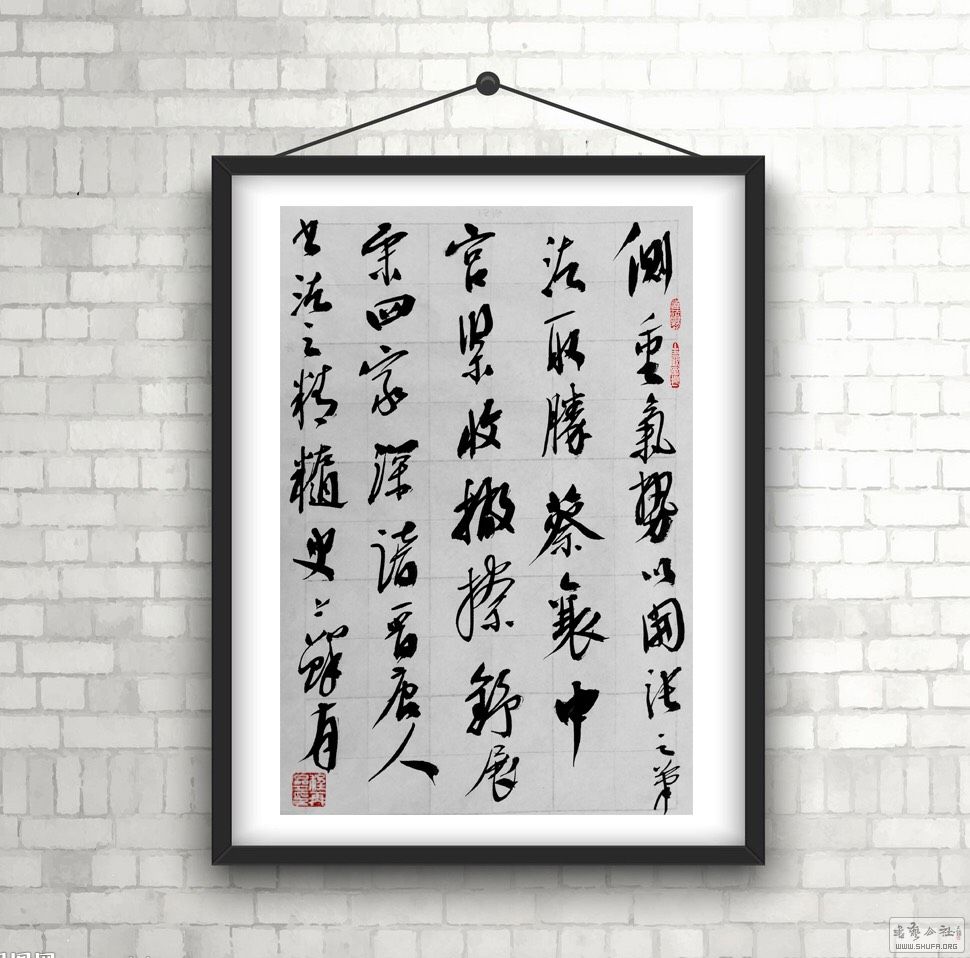 側重氣勢以開張之筆
法取勝蔡襄中
宮緊收撇捺舒展
宋四家深諳晋唐人
書法之精髓史上鮮有
WWW.SHUFA.ORG